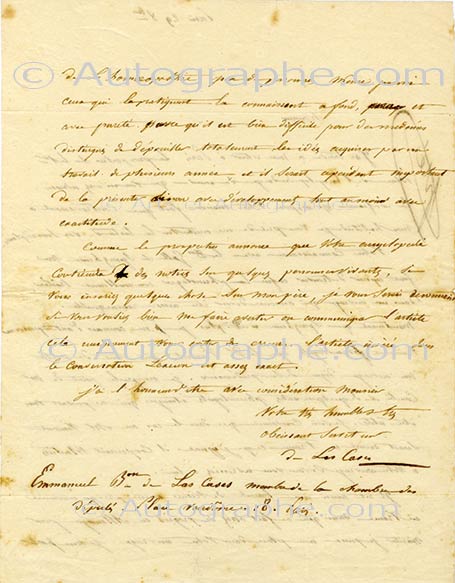 de l'homoeopathie peu de personnes même parmi
ceux qui la pratiquent la connaissent à fond, et
avec pureté parce qu'il est bien difficile pour des médecins
de dépouiller totalement les idées acquises par un
travail de plusieurs années, et il serait cependant important
de la présenter sinon avec développement tout au moins avec
exactitude.
Comme le prospectus annonce que votre encyclopédie
contiendra des notices sur quelques personnes vivantes, si
vous insérez quelque chose sur mon père, je vous serai
si vous voulez bien me faire communiquer l'article
cela uniquement pour éviter des erreurs. l'article inséré dans
le Conversations Lexicon est assez exact.
j'ai l'honneur d'être avec considération Monsieur
Votre très humble et très
obéissant Serviteur
de Las Cases
Emmanuel Bon de Las Cases membre de la chambre des
Députés Place Vendôme 8 Paris.
© Autographe.com
© Autographe.com
© Autographe.com
© Autographe.com